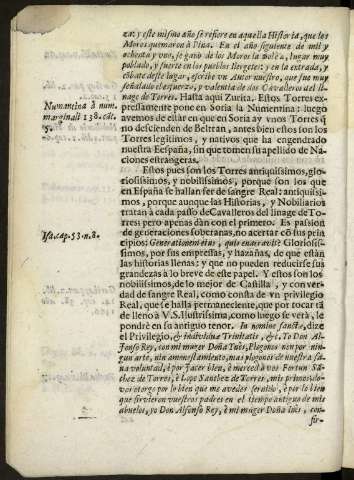 za: y este mismo año se refiere en aquella Historia, que los
Moros quemaron à Ilina. En el año siguiente de mil y
ochenta y vno, se ganò de los Moros la
poblado, y fuerte en los pueblos Bergetes: y en la entrada, y
cõbate deste lugar, escribe vn Autor nuestro, que fue muy
señalado el esfuerzo, y valentia de dos Cavalleros del li-
nage de Torres. Hasta aqui Zurita. Estos Torres ex-
Numantina à num.
marginali 138. cat.
7.
pressamente pone en Soria la Numentina: luego
avemos de estàr en que en Soria ay vnos Torres q̃
no descienden de Beltran, antes bien estos son los
Torres legitimos, y nativos que ha engendrado
nuestra España, sin que tomen su apellido de Na-
ciones estrangeras.
Estos pues son los Torres antiquissimos, glo-
riosissimos, y nobilissimos, porque son los que
en España se hallan ser de sangre Real: antiquissi-
mos, porque aunque las Historias, y Nobiliarios
tratan à cada passo de Cavalleros del linage de To-
rres pero apenas dàn con el primero. Es passion
de generaciones soberanas, no acertar cõ sus prin
Isa. cap. 53. n. 8.
cipios: Generationem eius, quis enarravit? Gloriosissi-
mos, por sus empressas, y hazañas, de que estàn
las historias llenas; y que no pueden reducirse sus
grandezas à lo breve de este papel. Y estos son los
nobilissimos, de lo mejor de Castilla, y con ver-
dad de sangre Real, como consta de vn privilegio
Real, que se halla permaneciente, que por tocar tã
de lleno à V.S. Ilustrissima, como luego se verà, le
pondrè en su antiguo tenor. In nomine sanctæ, dize
el Privilegio, & individuæ Trinitatis, &c. Yo Don Al-
fonso Rey, con mi muger Doña Inès, Plogonos non por nin-
gun arte, nin amonestamiento, mas plogonos de nuestra sa-
na voluntad, è por facer bien, è merced à vos Fortun Sã-
chez de Torres, è Lope Sanchez de Torres, mis primos, do-
vos otorgo por lo bien que me avedes servido, è por lo bien
que sirvieron vuestros padres en el tiempo antiguo de mis
abuelos, yo Don Alfonso Rey, è mi muger Doña Inès, con-
fir-